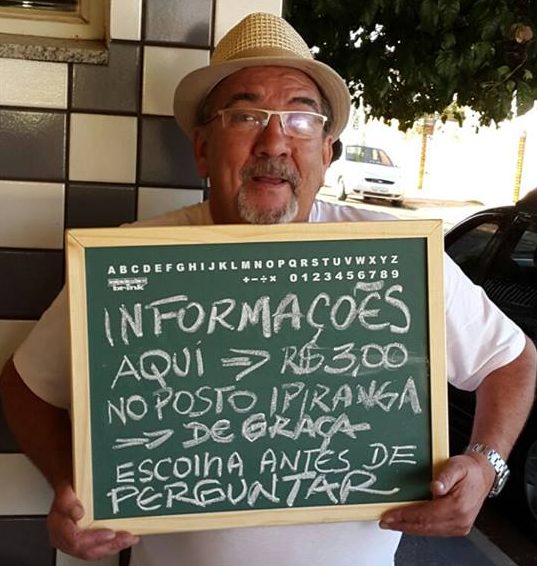 ABCDEFGHIJKLMNOPQRSTUVWXYZ
+−÷× 0123456789
brink
INFORMAÇÕES
AQUÍ => R$ 3,00
NO POSTO IPIRANGA
=> DE GRAÇA
ESCOLHA ANTES DE
PERGUNTAR